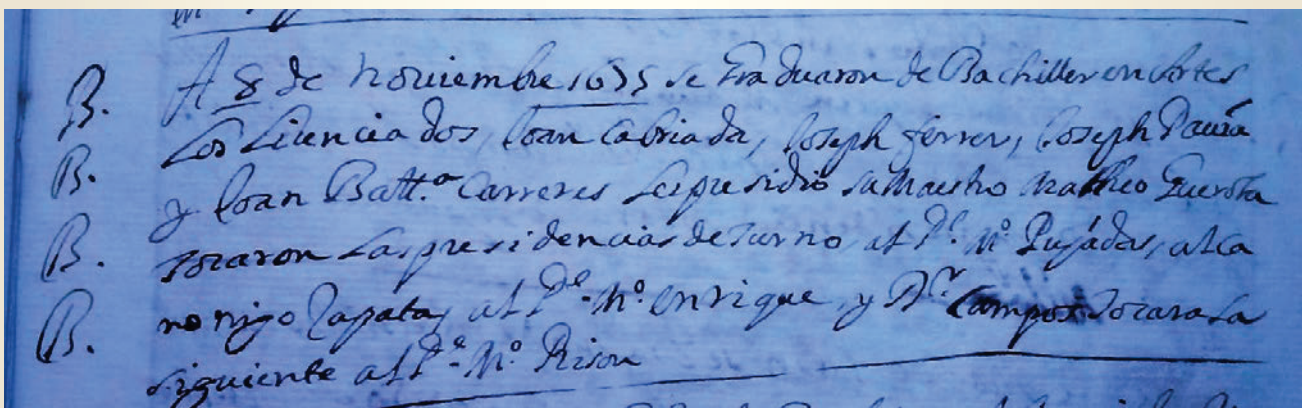 B. A 8 de nouiembre 1675 se Graduaron de Bachiller en Artes
B. Los Licenciados, Joan Cabriada, Joseph ferrer, Joseph Pauía
y Joan Batt.ª Carreres Les presidió su Maestro Matheo Guerola
B. tocaron Las presidencias de turno, al P.e M.º Pujádas, al Ca
B. nonigo Zapata, al P.e M.º Enrique, y D.r Campos tocara La
siguiente al P.e M.º Rison